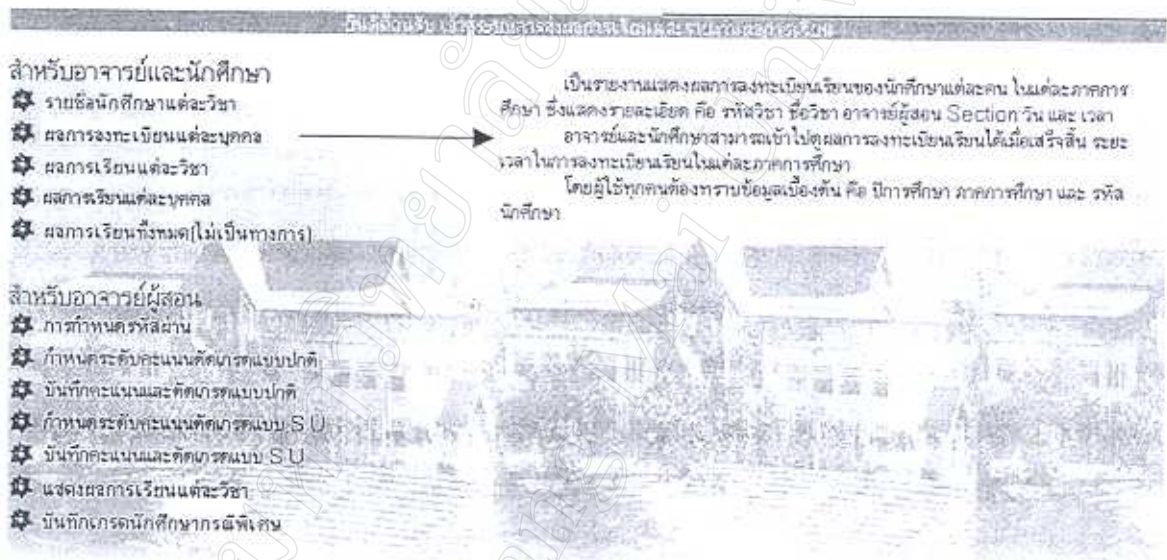 ยินดีต้อนรับ เข้าสู่ระบบการส่งผลการเรียนและรายงานผลการเรียน
สำหรับอาจารย์และนักศึกษา
รายชื่อนักศึกษาแต่ละวิชา
ผลการลงทะเบียนแต่ละบุคคล
ผลการเรียนแต่ละวิชา
ผลการเรียนแต่ละบุคคล
ผลการเรียนทั้งหมด(ไม่เป็นทางการ)
สำหรับอาจารย์ผู้สอน
การกำหนดรหัสผ่าน
กำหนดระดับคะแนนตัดเกรดแบบปกติ
บันทึกคะแนนและตัดเกรดแบบปกติ
กำหนดระดับคะแนนตัดเกรดแบบ S U
บันทึกคะแนนและตัดเกรดแบบ S U
แสดงผลการเรียนแต่ละวิชา
บันทึกเกรดนักศึกษากรณีพิเศษ
เป็นรายงานแสดงผลการลงทะเบียนเรียนของนักศึกษาแต่ละคน ในแต่ละภาคการ
ศึกษา ซึ่งแสดงรายละเอียด คือ รหัสวิชา ชื่อวิชา อาจารย์ผู้สอน Section วัน และ เวลา
อาจารย์และนักศึกษาสามารถเข้าไปดูผลการลงทะเบียนเรียนได้เมื่อเสร็จสิ้น ระยะ
เวลาในการลงทะเบียนเรียนในแต่ละภาคการศึกษา
โดยผู้ใช้ทุกคนต้องทราบข้อมูลเบื้องต้น คือ ปีการศึกษา ภาคการศึกษา และ รหัส
นักศึกษา